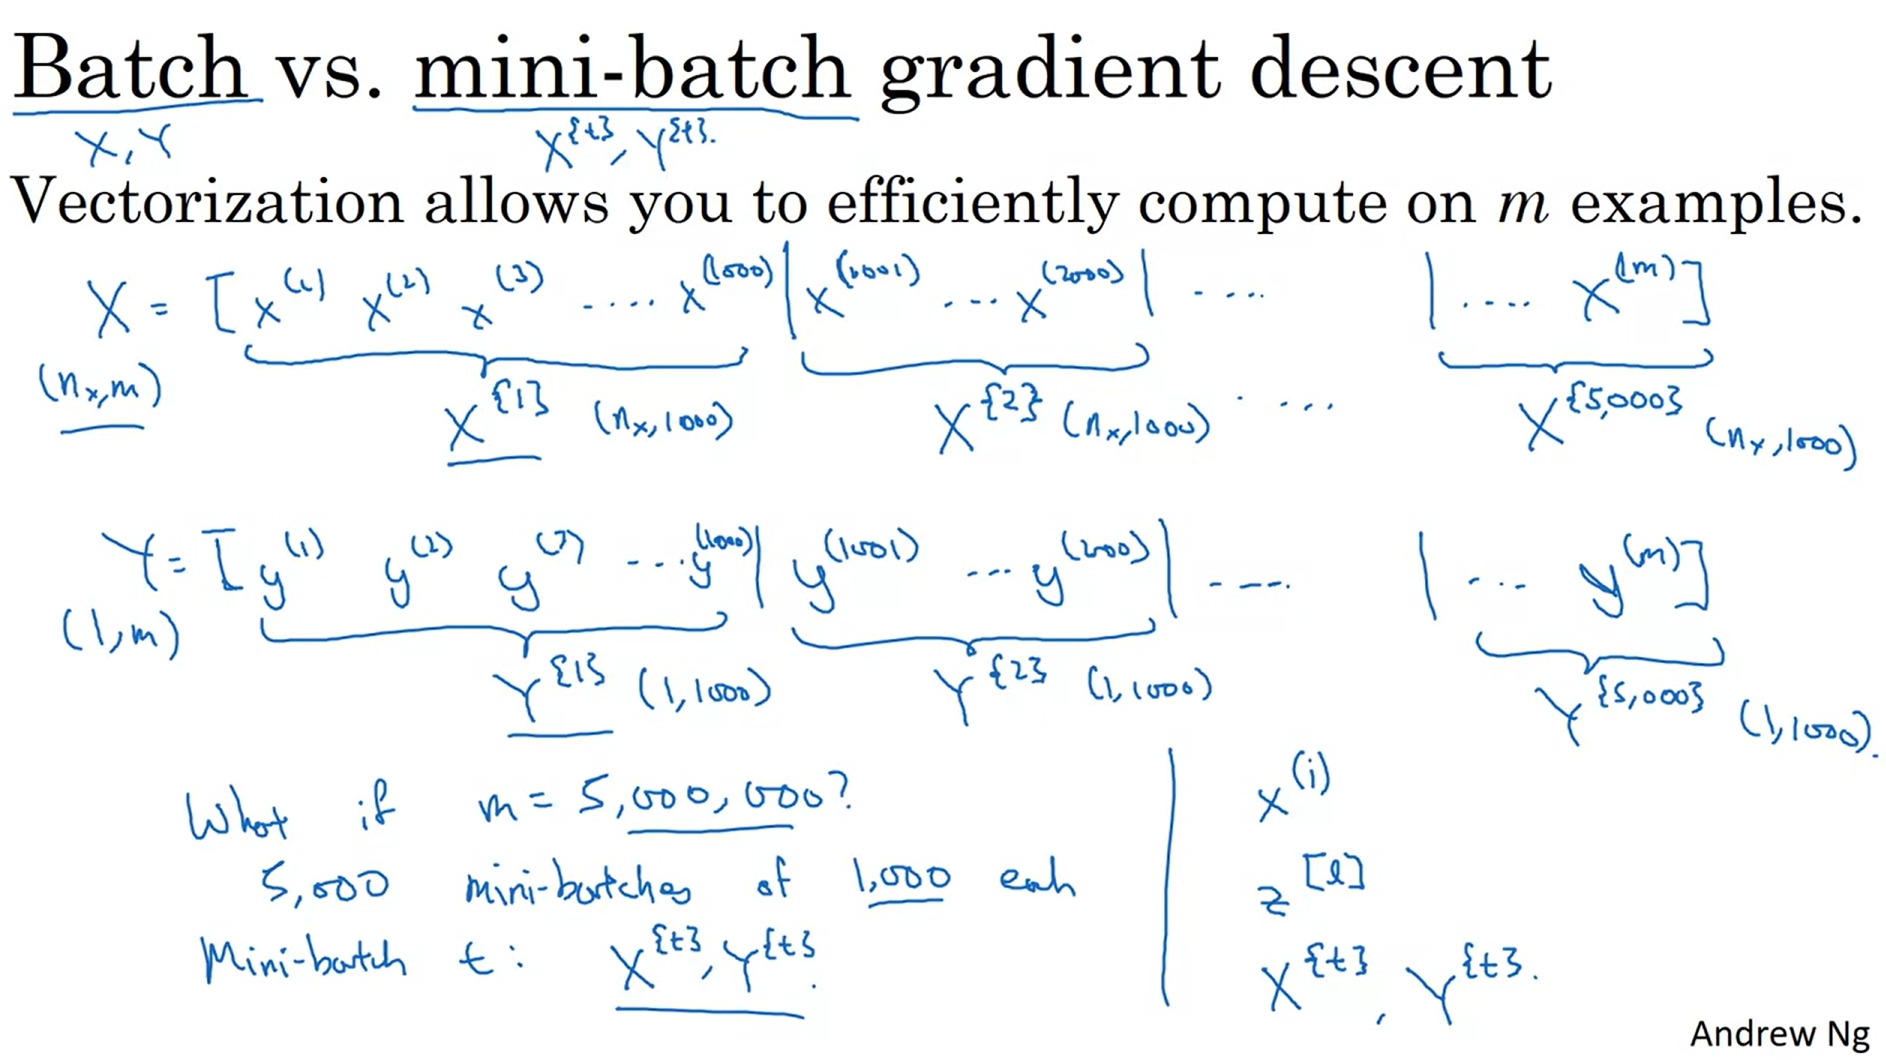 Batch vs. mini-batch gradient descent
X, Y X^{t}, Y^{t}.
Vectorization allows you to efficiently compute on m examples.
X = [x^(1) x^(2) x^(3) .... x^(1000) | x^(1001) ... x^(2000) | .... | .... x^(m)]
(n_x, m) X^{1} (n_x, 1000) X^{2} (n_x, 1000) .... X^{5,000} (n_x, 1000)
Y = [y^(1) y^(2) y^(3) ... y^(1000) | y^(1001) ... y^(2000) | ---- | ... y^(m)]
(1, m) Y^{1} (1, 1000) Y^{2} (1, 1000) Y^{5,000} (1, 1000).
What if m = 5,000,000?
5,000 mini-batches of 1,000 each
Mini-batch t: X^{t}, Y^{t}.
x^(i)
z^[l]
X^{t}, Y^{t}.
Andrew Ng